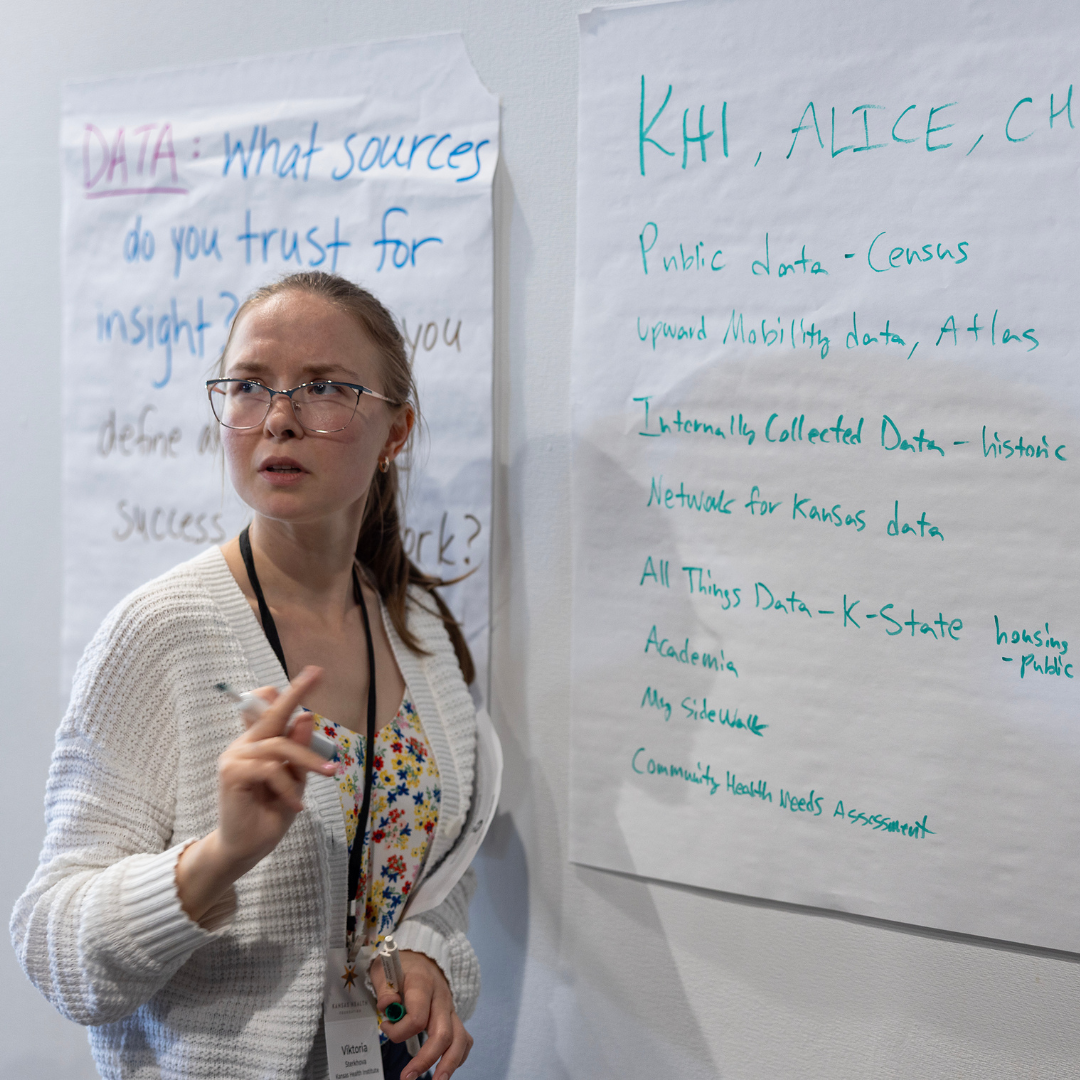 DATA: What sources
do you trust for
insight? you
define
success ork?
KHI, ALICE, CH
Public data - Census
upward Mobility data, Atlas
Internally Collected Data - historic
Network for Kansas data
All Things Data - K-State housing
- public
Academia
My Sidewalk
Community Health Needs Assessment
KANSAS HEALTH
Viktoria
Kansas Health Institute